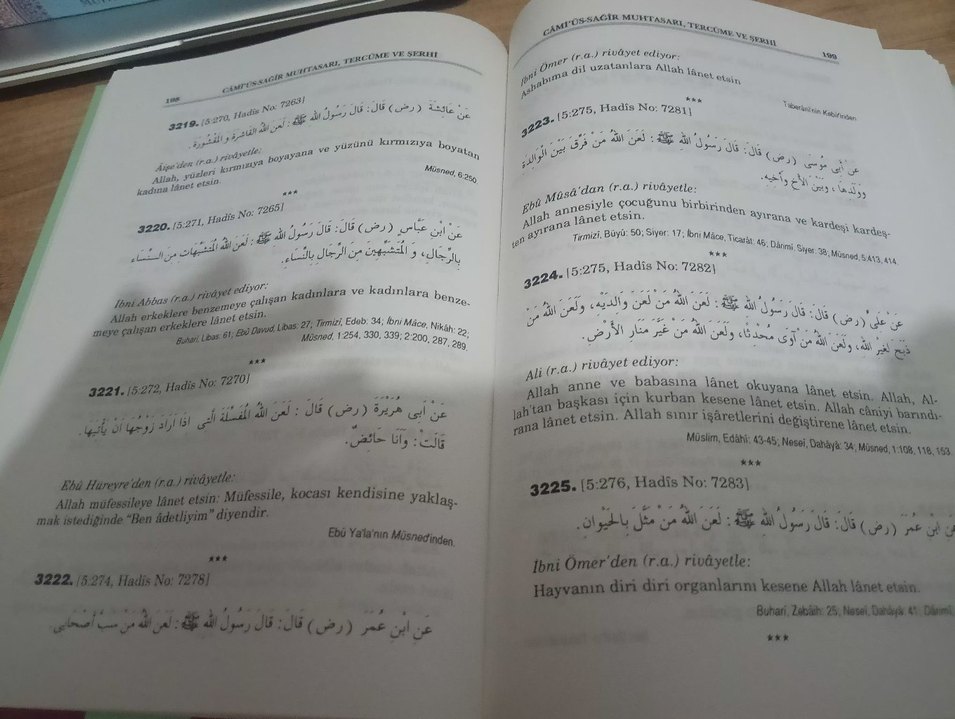 198
CÂMİ'ÜS-SAĞİR MUHTASARI, TERCÜME VE ŞERHİ
3219. [5:270, Hadîs No: 7263]
عَنْ عَائِشَةَ (رض) قَالَ: قَالَ رَسُولُ اللهِ ﷺ: لَعَنَ اللهُ الْقَاشِرَةَ وَ الْمَقْشُورَةَ.
Âişe'den (r.a.) rivâyetle:
Allah, yüzleri kırmızıya boyayana ve yüzünü kırmızıya boyatan
kadına lânet etsin.
Müsned, 6:250.
***
3220. [5:271, Hadîs No: 7265]
عَنْ ابْنِ عَبَّاسٍ (رض) قَالَ: قَالَ رَسُولُ اللهِ ﷺ: لَعَنَ اللهُ الْمُتَشَبِّهَاتِ مِنَ النِّسَاءِ
بِالرِّجَالِ، وَ الْمُتَشَبِّهِينَ مِنَ الرِّجَالِ بِالنِّسَاءِ.
İbni Abbas (r.a.) rivâyet ediyor:
Allah erkeklere benzemeye çalışan kadınlara ve kadınlara benze-
meye çalışan erkeklere lânet etsin.
Buharî, Libas: 61; Ebû Davud, Libas: 27; Tirmizî, Edeb: 34; İbni Mâce, Nikâh: 22;
Müsned, 1:254, 330, 339; 2:200, 287, 289.
***
3221. [5:272, Hadîs No: 7270]
عَنْ اَبِى هُرَيْرَةَ (رض) قَالَ: لَعَنَ اللهُ الْمُفَسِّلَةَ الَّتِى اِذَا اَرَادَ زَوْجُهَا اَنْ يَأْتِيَهَا.
قَالَتْ: وَاَنَا حَائِضٌ.
Ebû Hüreyre'den (r.a.) rivâyetle:
Allah müfessileye lânet etsin: Müfessile, kocası kendisine yaklaş-
mak istediğinde "Ben âdetliyim" diyendir.
Ebû Ya'la'nın Müsned'inden.
***
3222. [5:274, Hadîs No: 7278]
عَنِ ابْنِ عُمَرَ (رض) قَالَ: قَالَ رَسُولُ اللهِ ﷺ: لَعَنَ اللهُ مَنْ سَبَّ اَصْحَابِى.
CÂMİ'ÜS-SAĞİR MUHTASARI, TERCÜME VE ŞERHİ
199
İbni Ömer (r.a.) rivâyet ediyor:
Ashabıma dil uzatanlara Allah lânet etsin
Taberânî'nin Kebîr'inden.
***
3223. [5:275, Hadîs No: 7281]
عَنْ اَبِى مُوسَى (رض) قَالَ: قَالَ رَسُولُ اللهِ ﷺ: لَعَنَ اللهُ مَنْ فَرَّقَ بَيْنَ الْوَالِدَةِ
وَوَلَدِهَا، وَبَيْنَ الْاَخِ وَاَخِيهِ.
Ebû Mûsâ'dan (r.a.) rivâyetle:
Allah annesiyle çocuğunu birbirinden ayırana ve kardeşi kardeş-
ten ayırana lânet etsin.
Tirmizî, Büyû: 50; Siyer: 17; İbni Mâce, Ticarât: 46; Dârimî, Siyer: 38; Müsned, 5:413, 414.
***
3224. [5:275, Hadîs No: 7282]
عَنْ عَلِيٍّ (رض) قَالَ: قَالَ رَسُولُ اللهِ ﷺ: لَعَنَ اللهُ مَنْ لَعَنَ وَالِدَيْهِ، وَلَعَنَ اللهُ مَنْ
ذَبَحَ لِغَيْرِ اللهِ، وَلَعَنَ اللهُ مَنْ آوَى مُحْدِثًا، وَلَعَنَ اللهُ مَنْ غَيَّرَ مَنَارَ الْاَرْضِ.
Ali (r.a.) rivâyet ediyor:
Allah anne ve babasına lânet okuyana lânet etsin. Allah, Al-
lah'tan başkası için kurban kesene lânet etsin. Allah câniyi barındı-
rana lânet etsin. Allah sınır işâretlerini değiştirene lânet etsin.
Müslim, Edâhî: 43-45; Neseî, Dahâyâ: 34; Müsned, 1:108, 118, 153.
***
3225. [5:276, Hadîs No: 7283]
ابْنِ عُمَرَ (رض) قَالَ: قَالَ رَسُولُ اللهِ ﷺ: لَعَنَ اللهُ مَنْ مَثَّلَ بِالْحَيْوَانِ.
İbni Ömer'den (r.a.) rivâyetle:
Hayvanın diri diri organlarını kesene Allah lânet etsin.
Buharî, Zebâih: 25, Neseî, Dahâyâ: 41; Dârimî,
***